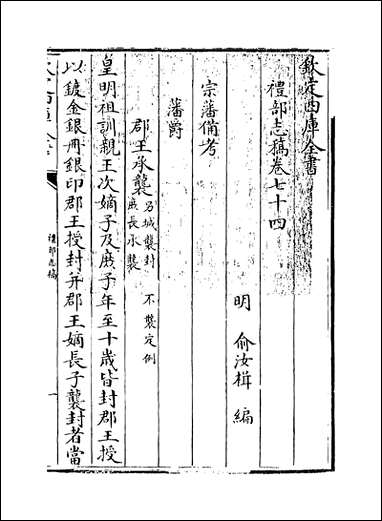 欽定四庫全書
禮部志稿卷七十四
明 俞汝楫 編
宗藩備考
藩爵
郡王承襲 另城襲封 庶長承襲 不襲定例
皇明祖訓親王次嫡子及庶子年至十歲皆封郡王授
以鍍金銀冊銀印郡王授封并郡王嫡長子襲封者當
禮部志稿
一